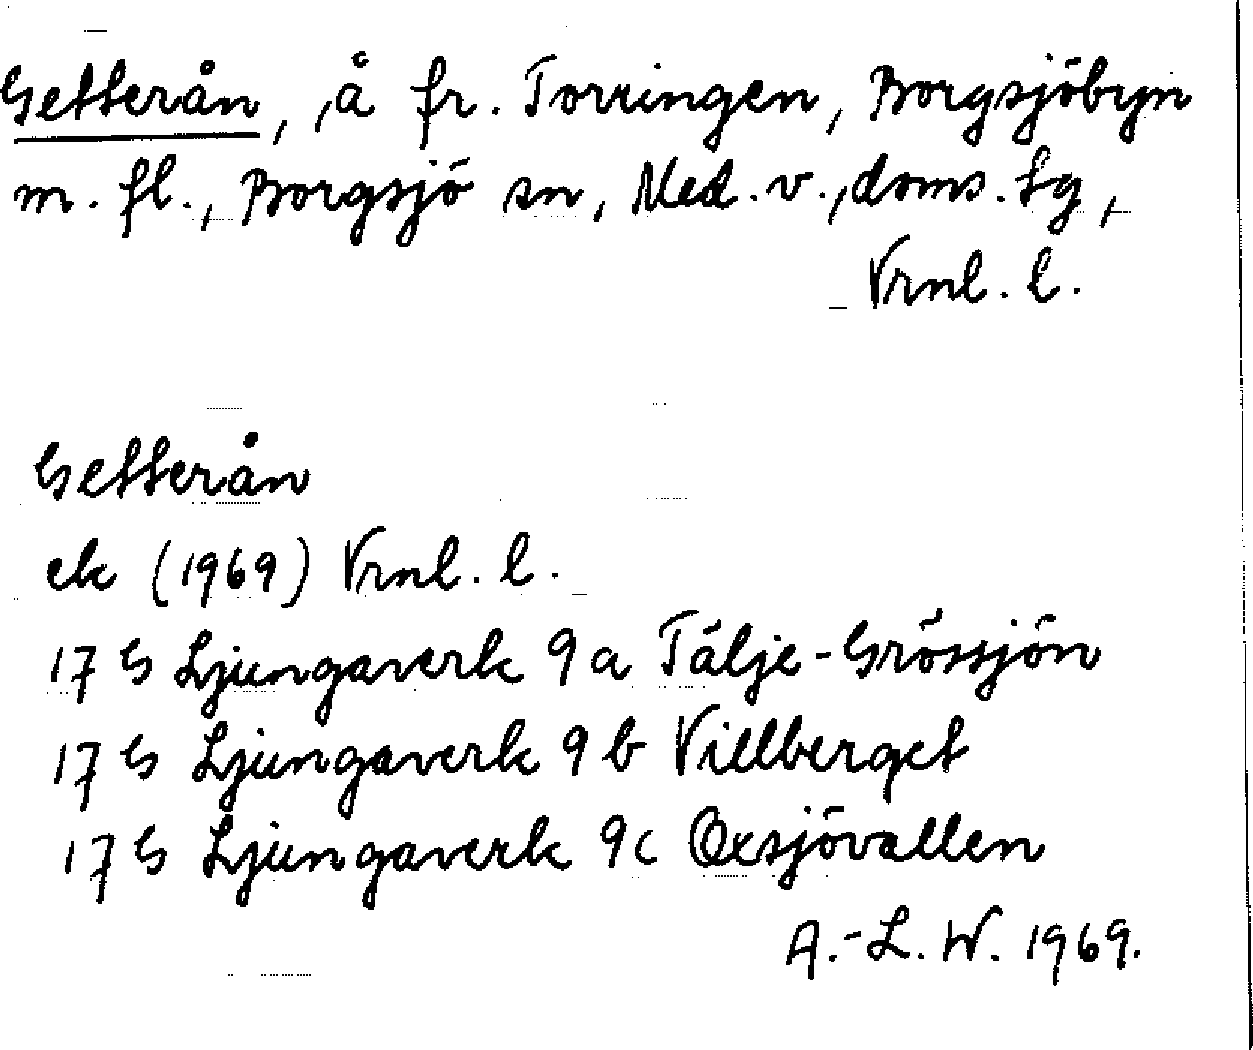 Getterån, å fr. Torringen, Borgsjöbyn
m. fl., Borgsjö sn, Med. v., doms. tg,
Vrnl. l.
Getterån
ek (1969) Vrnl. l.
17 G Ljungaverk 9 a Tälje-Grössjön
17 G Ljungaverk 9 b Villberget
17 G Ljungaverk 9c Oxsjövallen
A.-L. W. 1969.